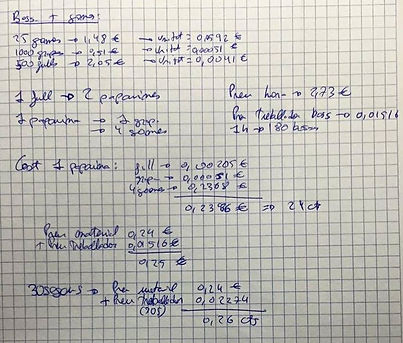 Boss + gomes:
25 gomes → 1,48 € → Unitat = 0,0592 €
1000 grapes → 0,51 € → Unitat = 0,00051 €
500 fulls → 2,05 € → Unitat = 0,0041 €
1 full → 2 papaxines
Preu hora → 2,73 €
1 papaxina → 1 grap.
Preu treballador boss → 0,01516
→ 4 gomes
1h → 180 boss
Cost 1 papaxina: full → 0,00205 €
grap → 0,00051 €
4 gomes → 0,2368 €
0,2386 € ⇒ 24 cts
Preu material 0,24 €
+ Preu treballador 0,01516 €
0,25 €
30 segons → Preu material 0,24 €
+ Preu treballador 0,02274
(30s)
0,26 cts